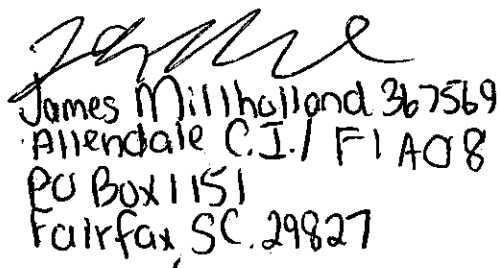 James Millholland 367569
Allendale C.I./ F1A08
PO Box 1151
Fairfax, SC. 29827